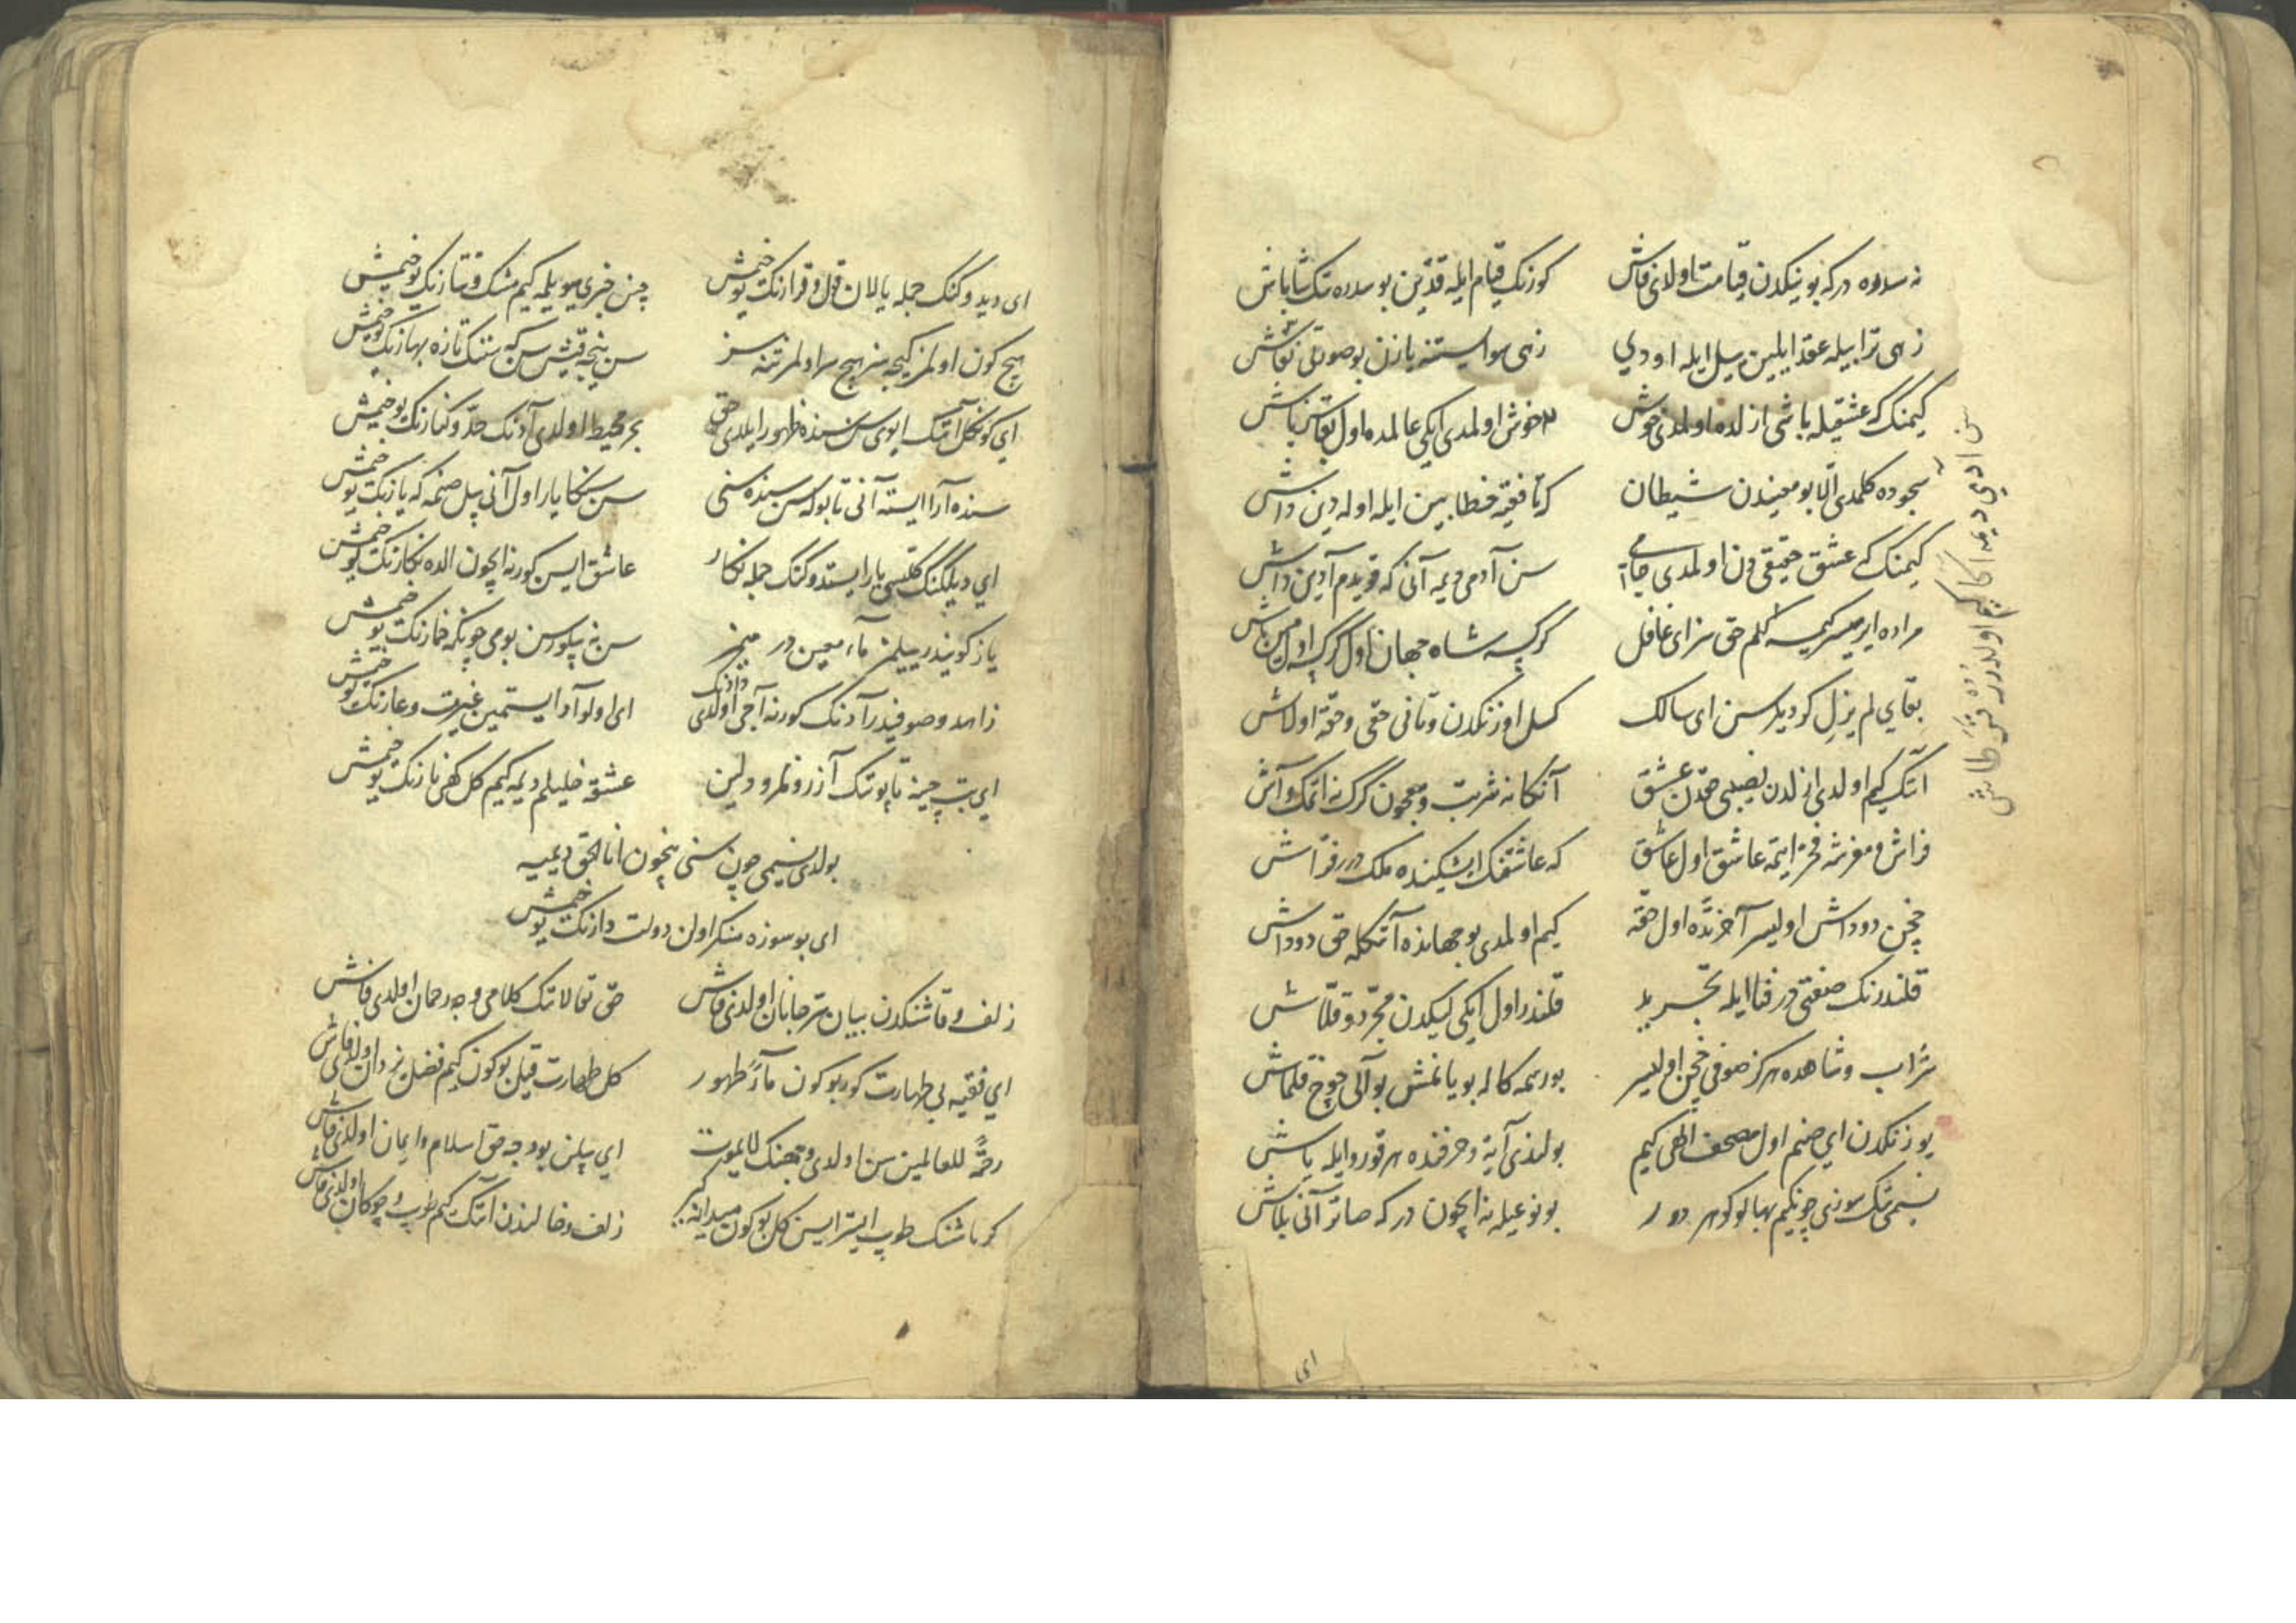 نه سدره در که بوینکدن قیامت اولدی فاش کورنک قیام ایله قدین بو سدره تک شاباش
زهی ترابیله عقد ایلین سیل ایله اودي زهی هوا ایستنه یازن بو صورتی نقاش
کیمنک که عشقیله باشی ازلده اولمدی خوش خوش اولمدی ایکی عالمده اول
سجوده کلمدی الا بو معنیدن شیطان که تا فقیه خطابین ایله اوله دین داش
کیمنک که عشق حقیقی دن اولمدی جامی سن آدمی دیمه آنی که قویدم آدین داش
مراده ایرمیسر کیمسه کلم حق سز ای غافل کرکسه شاه جهان اول کرکسه اول
بقاي لم یزل کر دیلرسن ای سالک کسل اوزنکدن و تانی حقی و حقه اولاش
آنک کیم اولدی ازلدن نصیبی حقدن عشق آنکا نه شربت و معجون کرک نه اتمک و آش
فراش و مفرشه فخر ایتمه عاشق اول عاشق که عاشقنک ایشیکنده ملک در فراش
خچن دوداش اولیسر آخرتده اول حقه کیم اولمدی بو جهانده آنکله حق دوداش
قلندرنک صفتی در فنا ایله تجرید قلندر اول ایکی لیکدن مجرد و قلاش
شراب و شاهده هرکز صوفی خچن اولیسر بو رسمه کاله بویانمش بو آلی چوخ قلماش
یوزنکدن ای صنم اول مصحف الهی کیم بولندی آیة و حرفنده هر قورو ایله یاش
نسیمی نک سوزی چونکیم بهالو کوهر دور بونوعیله نه ایچون در که صاتر آنی بلماش
سن ادمي دیمه اکا کیم اولدر قر طاش
ای
ای دیدوکنک جمله یالان قول و قرارنک یوخیمش چین خبری سویله کیم مشک و تتارنک یوخیمش
هیچ کون اولمز کیجه سز هیچ سر اولمز تنه سز سن نیجه قیش سن که سننک تازه بهارنک یوخیمش
اي کونکل آنک ایوی سن سنده ظهور ایلدی حق بحر محیط اولدی آدنک حد و کنارنک یوخیمش
سنده آرا ایسته آنی تابوکه سن سنده سنی سن سنکا یار اول آنی بیل صنمه که یارنک یوخیمش
اي دیلکنک کلسی یار ایستدوکنک جمله نکار عاشق ایسن کورنه ایچون الده نکارنک یوخیمش
یاز کونیدر بیلمز ماء معین در سن نه بیلورسن بو می چونکه خمارنک یوخیمش
زاهد و صوفیدر آدنک کورنه آجی اولدی دادنک ای اولو آد ایستمین غیرت و عارنک یوخیمش
اي بت چینه تاپوتک آزر و نمرود دلین عشقه خلیلم دیمه کیم کل کفی نارنک یوخیمش
بولدی نسیمی چون سنی نیچون انا الحق دیمیه
ای بو سوزه منکر اولن دولت دارنک یوخیمش
زلف و قاشنکدن بیان سر جانان اولدی فاش حق تعالانک کلامی وجه رحمان اولدی فاش
اي فقیه بی طهارت کور بو کون ماء طهور کل طهارت قیل بو کون کیم فضل یزدان اولدی فاش
رحمة للعالمین سن اولدی وجهنک لایموت اي بیلن بو وجه حق اسلام و ایمان اولدی فاش
کر باشنک طوپ ایستر ایسن کل بو کون میدانه کیر زلف و خالندن آنک کیم طوپ و چوکان اولدی فاش